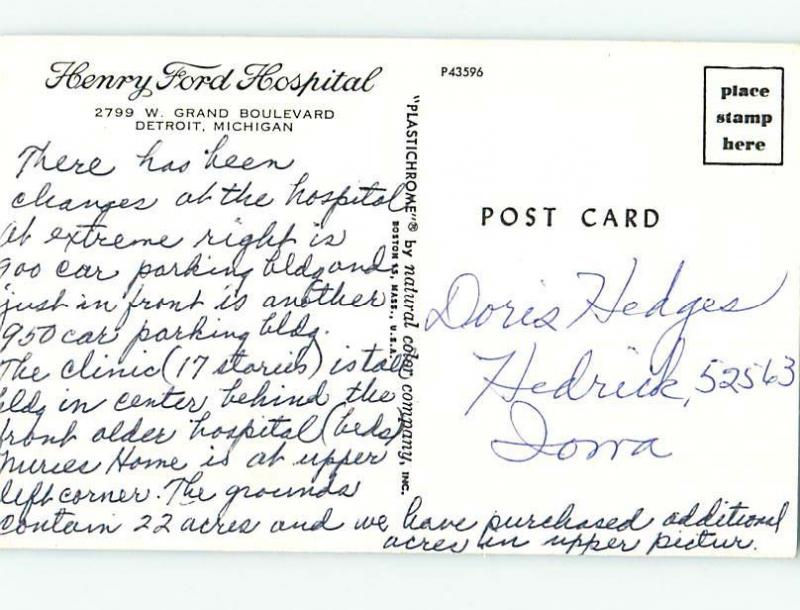 Henry Ford Hospital
2799 W. GRAND BOULEVARD
DETROIT, MICHIGAN
There has been
changes at the hospital
At extreme right is
900 car parking bldg and
just in front is another
950 car parking bldg.
The clinic (17 stories) is tall
bldg in center behind the
front older hospital (beds)
Nurses Home is at upper
left corner. The grounds
contain 22 acres and we have purchased additional
acres in upper pictur.
"PLASTICHROME"® by natural color company, INC.
BOSTON 15, MASS., U.S.A.
P43596
place
stamp
here
POST CARD
Doris Hedges
Hedrick, 52563
Iowa